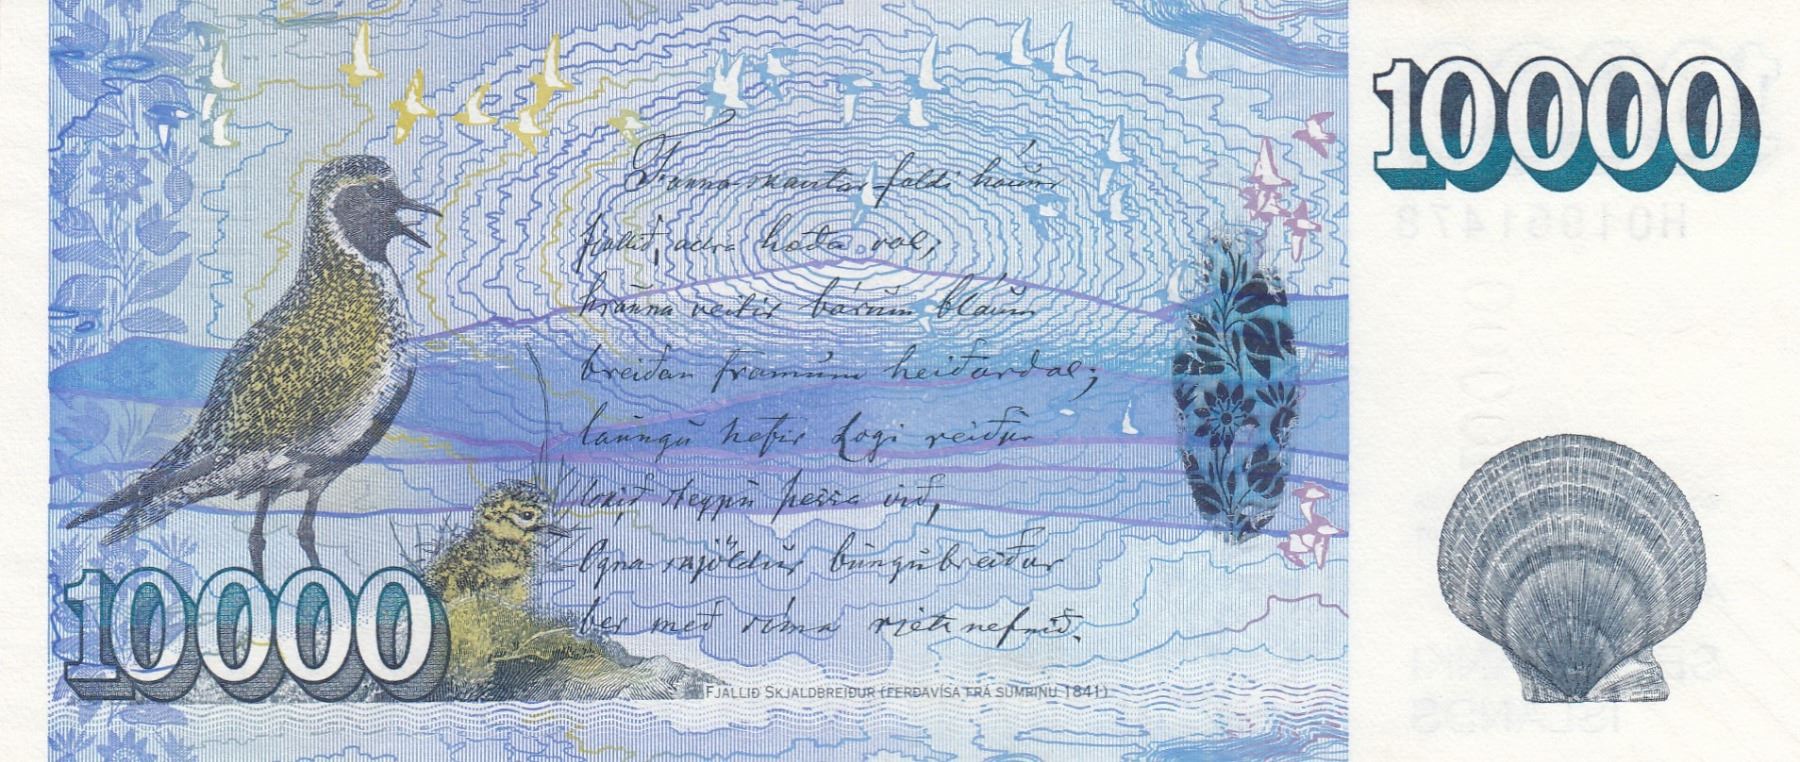 10000
Fanna skautar faldi háum
fjallið, allra hæða val;
hrauna veitir bárum bláum
breiðan framum heiðardal;
laungu hefir Logi reiður
lokið steypu þessa við,
Ógna skjöldur bungubreiður
ber með sóma rjett nefnið.
10000
FJALLIÐ SKJALDBREIÐUR (FERÐAVÍSA FRÁ SUMRINU 1841)